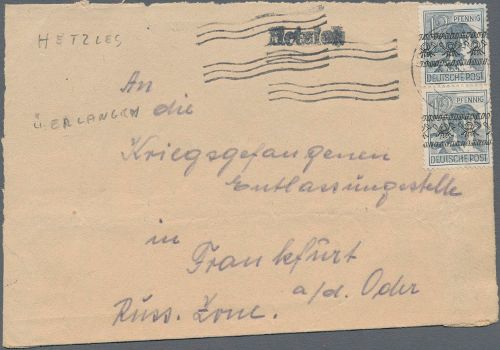 HETZLES
Hetzles
12 PFENNIG
DEUTSCHE POST
PFENNIG
DEUTSCHE POST
ü. ERLANGEN
An
die
Kriegsgefangenen
Entlassungsstelle
in
Frankfurt
a/d. Oder
Russ. Zone.